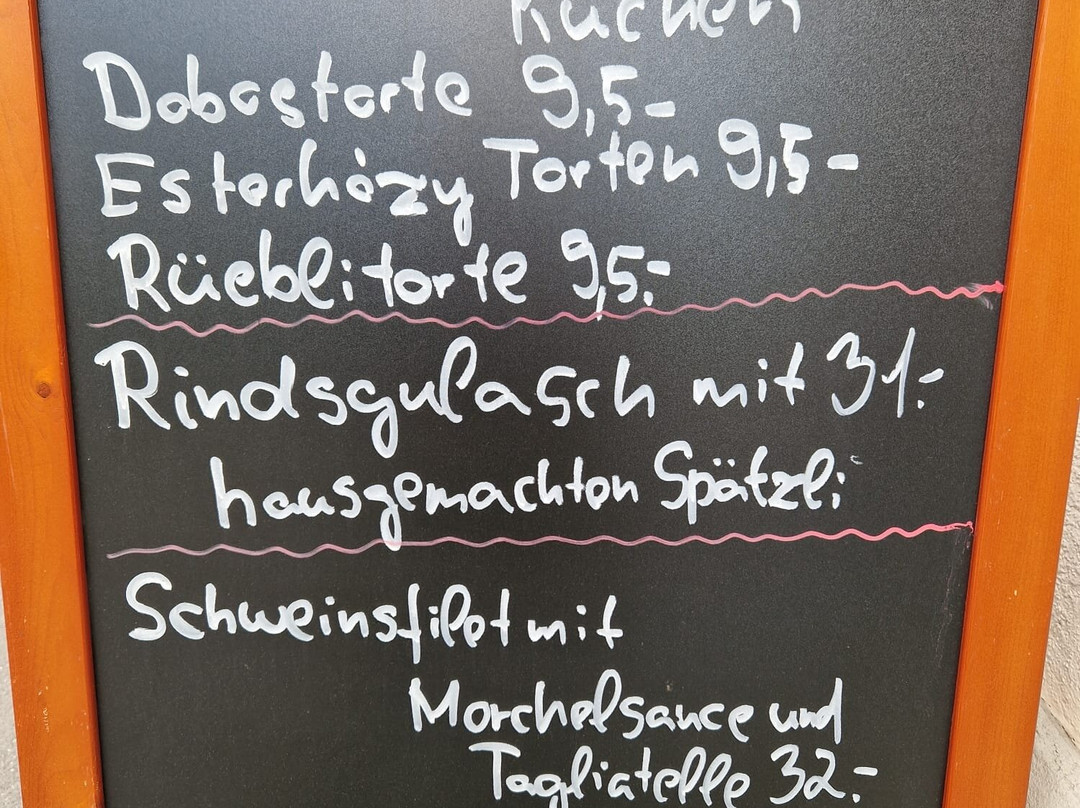 Kuchen
Dobostorte 9,5-
Esterházy Torten 9,5-
Rüeblitorte 9,5.-
Rindsgulasch mit 31.-
hausgemachten Spätzli
Schweinsfilet mit
Morchelsauce und
Tagliatelle 32.-